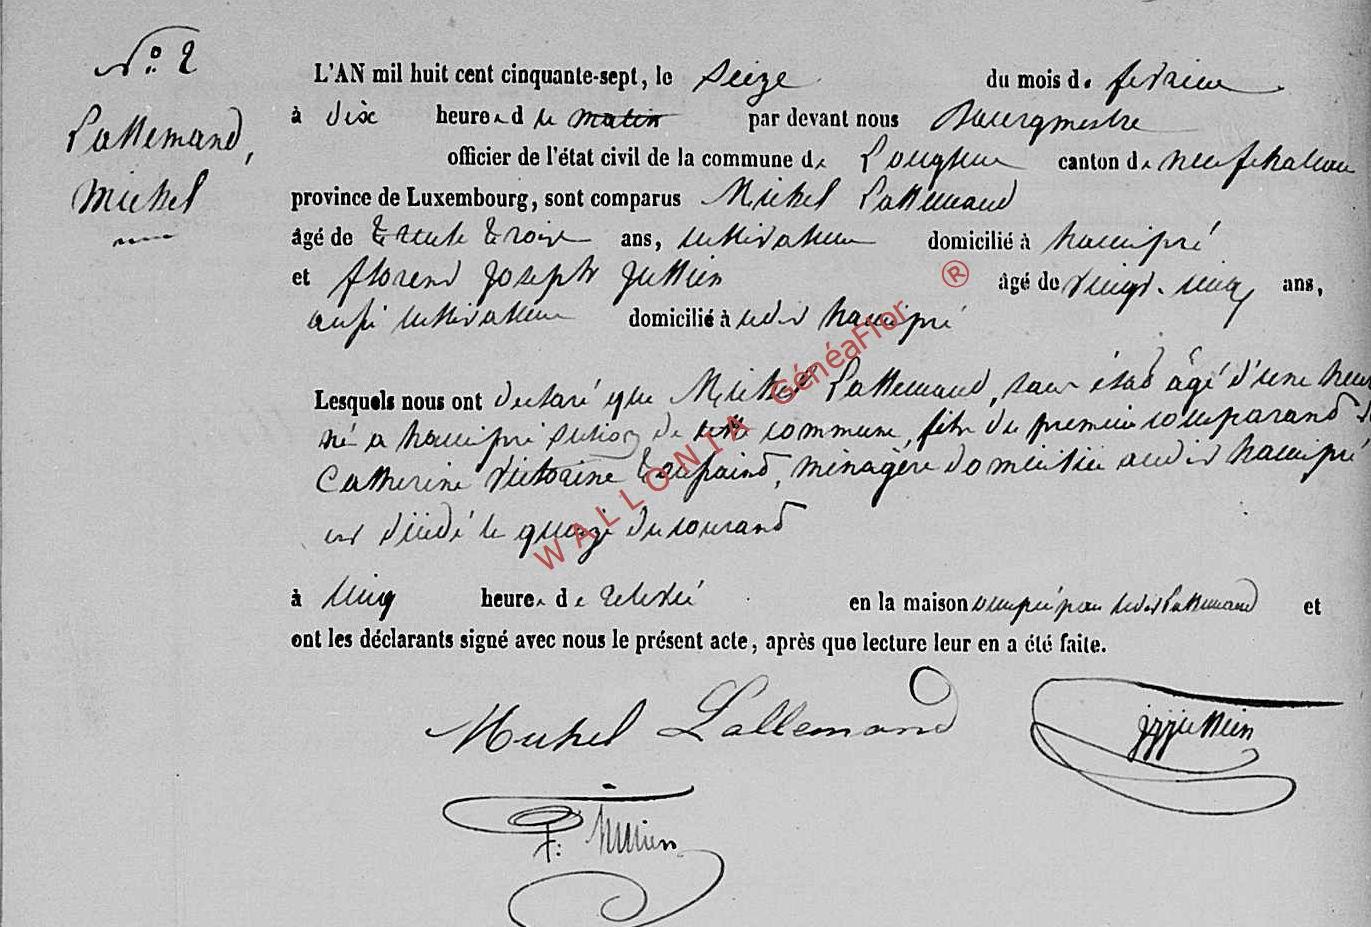 N.° 2
Lallemand,
Michel
L'AN mil huit cent cinquante-sept, le seize du mois de fevrier
à dix heures d u matin par devant nous Bourgmestre
officier de l'état civil de la commune de Longlier canton de neufchateau
province de Luxembourg, sont comparus Michel Lallemand
âgé de trente trois ans, cultivateur domicilié à hamipré
et florend joseph jullien âgé de vingt-cinq ans,
aussi cultivateur domicilié à audit hamipré
Lesquels nous ont declaré que Michel Lallemand, sans état âgé d'une heure
né a hamipré section de cette commune, fils du premier comparand &
Catherine Victorine, ménagère domiciliée audit hamipré
est décédé le quinze du courand
à cinq heures de relevée en la maison occupée par ledit Lallemand et
ont les déclarants signé avec nous le présent acte, après que lecture leur en a été faite.
Michel Lallemand
F: Jullien
WALLONIA GénéaFlor ®